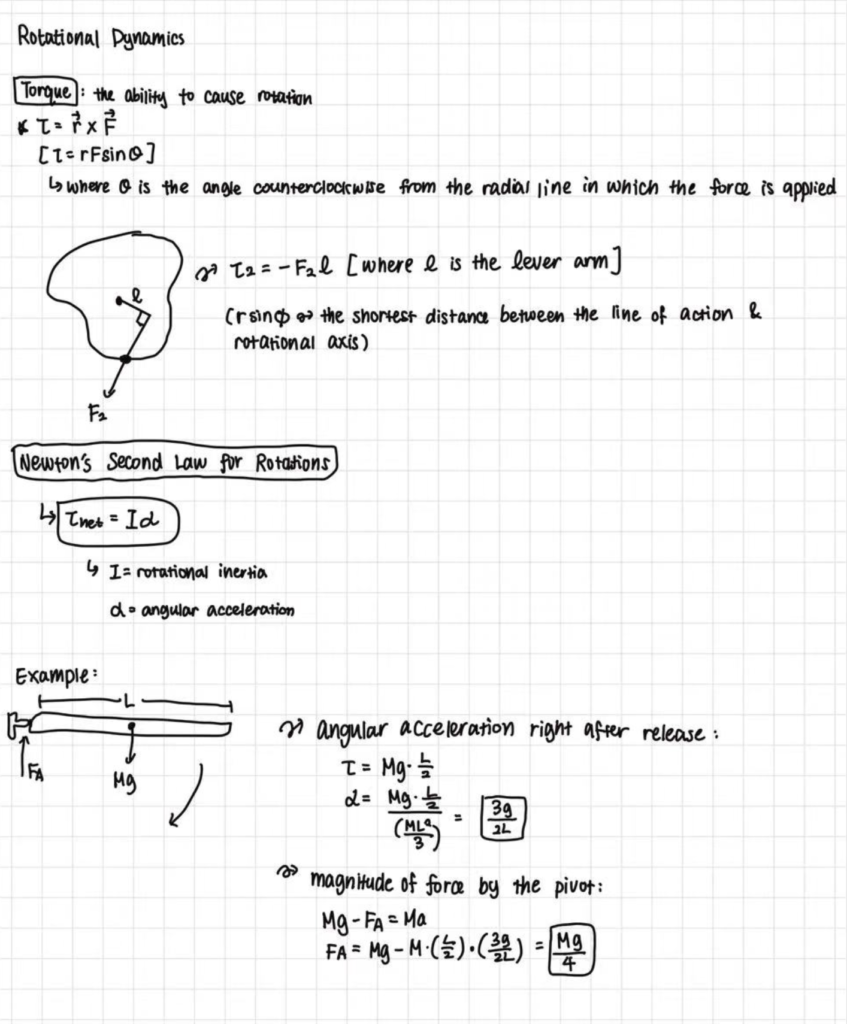 Rotational Dynamics
Torque : the ability to cause rotation
τ = r⃗ x F⃗
[τ = rFsinθ]
↳ where θ is the angle counterclockwise from the radial line in which the force is applied
τ₂ = -F₂l [where l is the lever arm]
l
(rsinφ ↔ the shortest distance between the line of action &
rotational axis)
F₂
Newton's Second Law for Rotations
↳ τnet = Iα
↳ I = rotational inertia
α = angular acceleration
Example:
L
FA
Mg
angular acceleration right after release :
τ = Mg · L/2
α = (Mg · L/2) / (ML²/3) = 3g/2L
magnitude of force by the pivot:
Mg - FA = Ma
FA = Mg - M · (L/2) · (3g/2L) = Mg/4